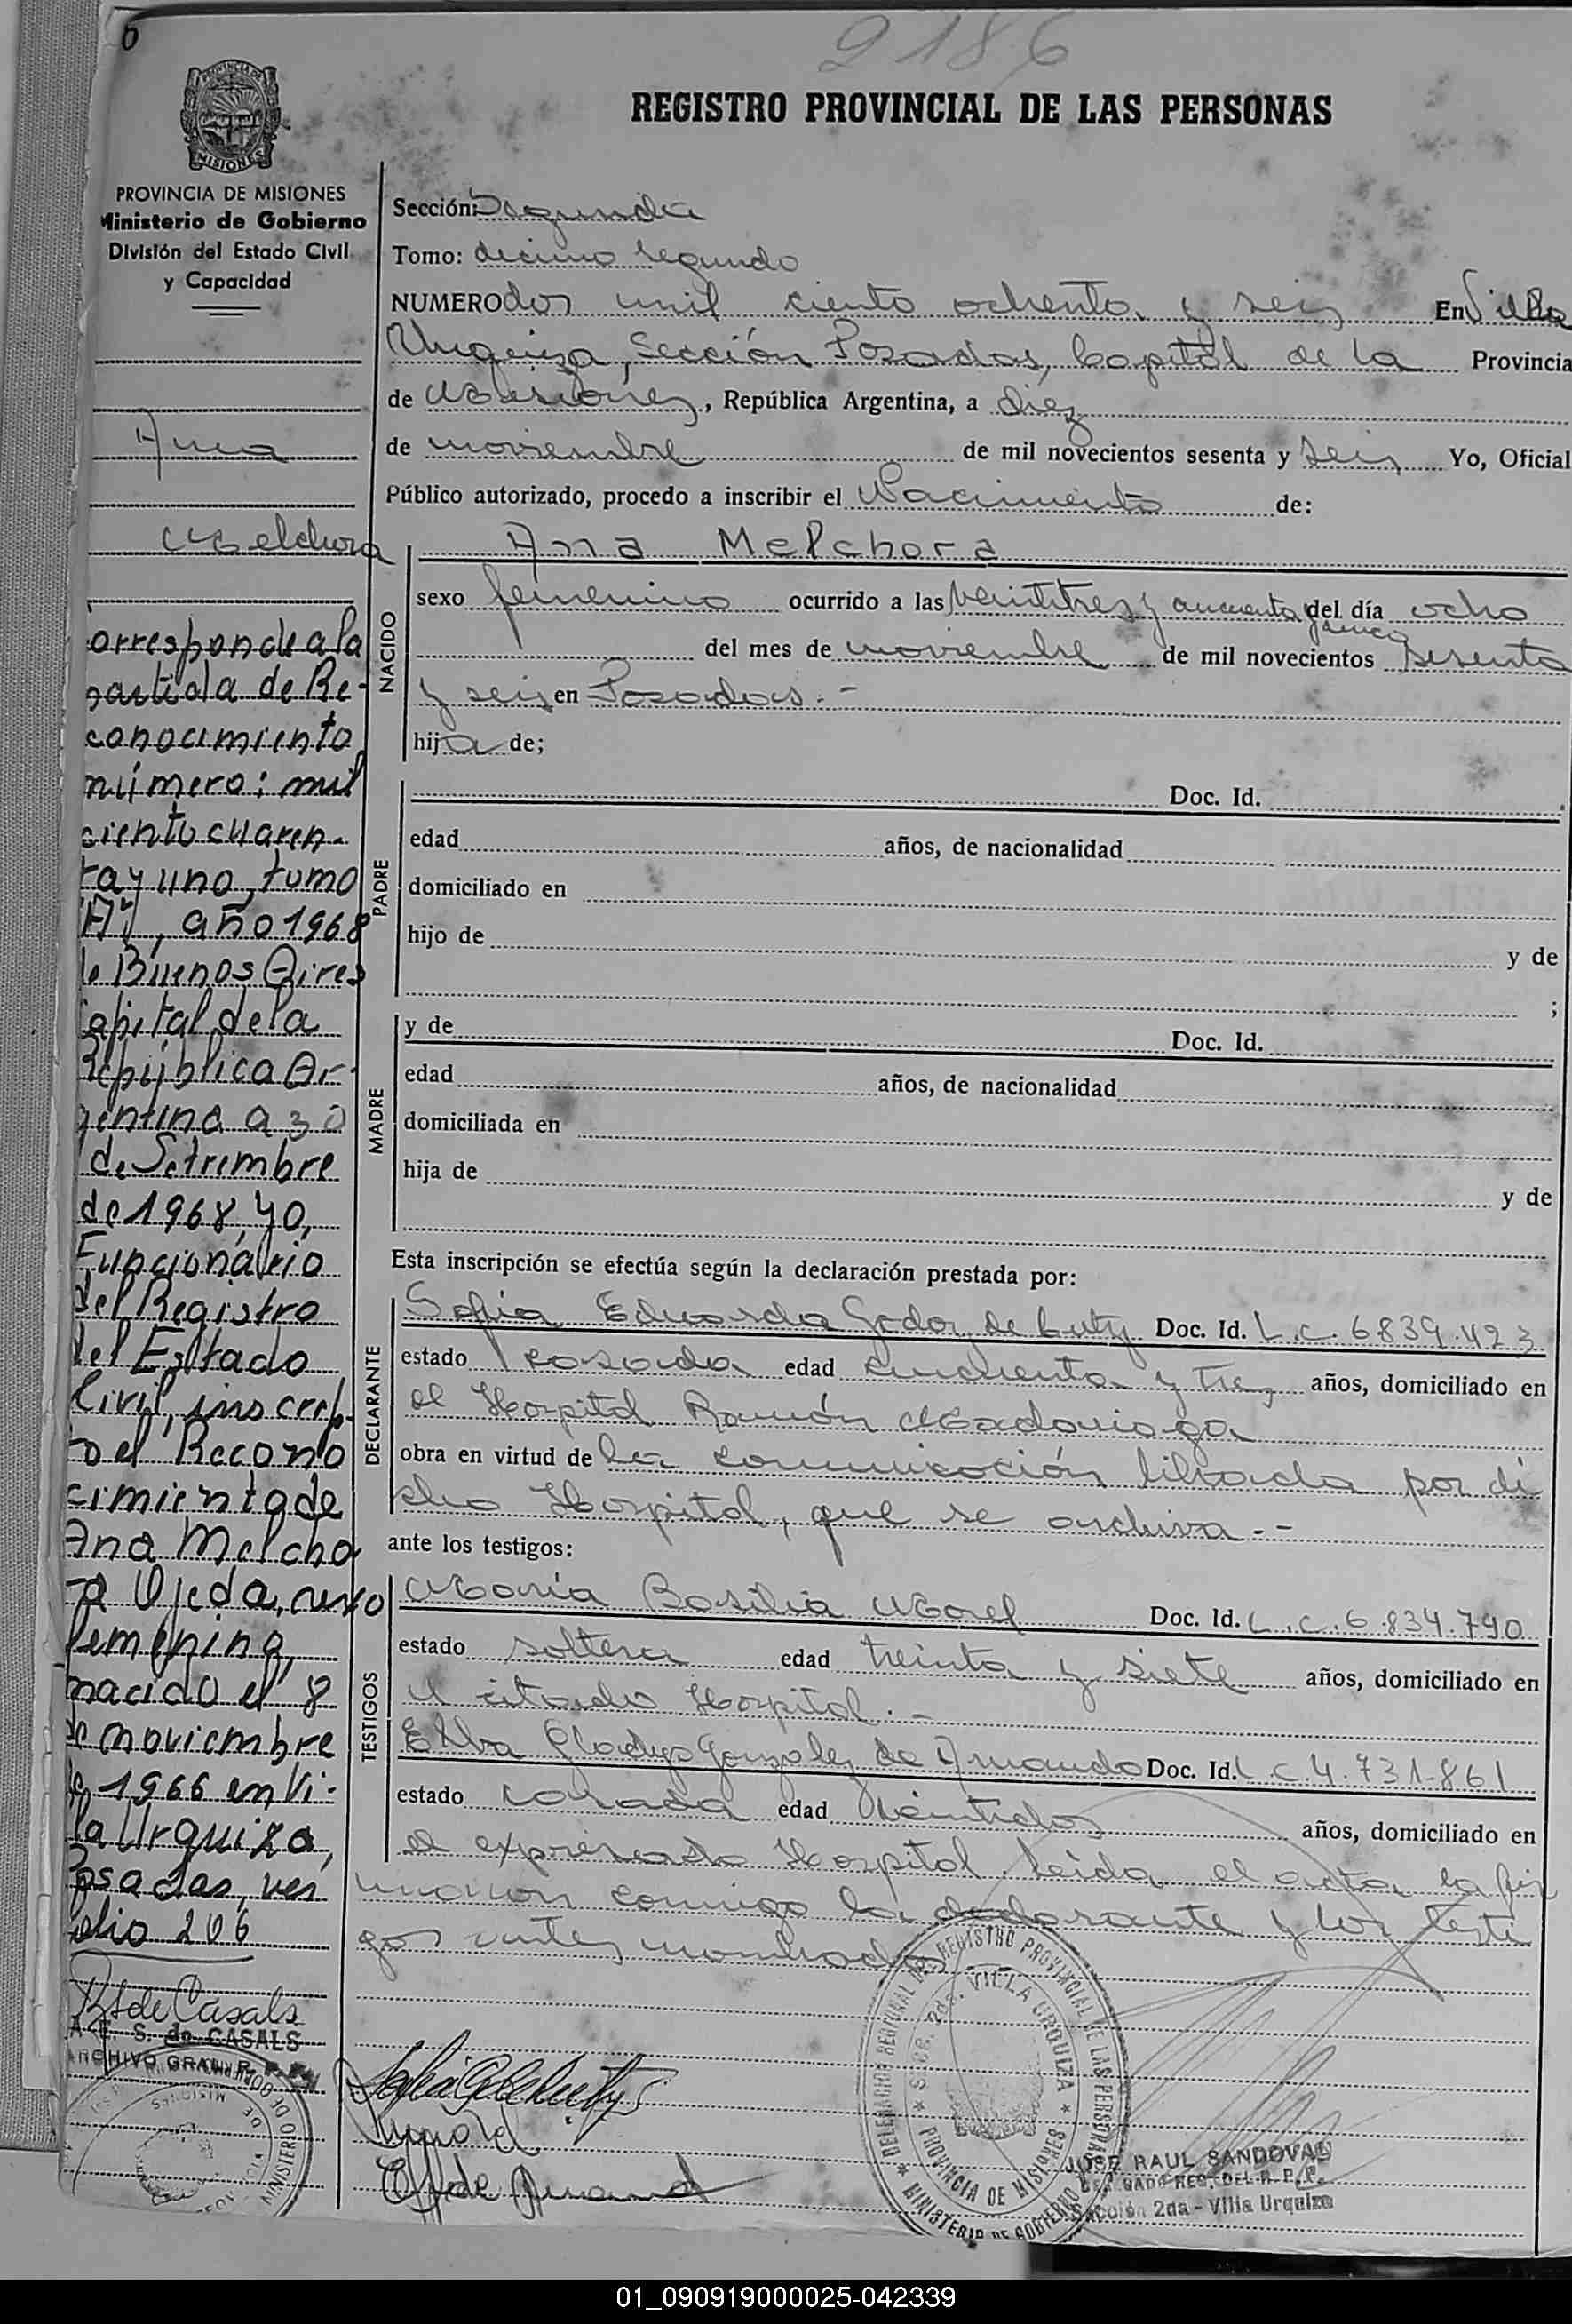 6
2186
REGISTRO PROVINCIAL DE LAS PERSONAS
MISIONES
PROVINCIA DE MISIONES
Ministerio de Gobierno
División del Estado Civil
y Capacidad
Ana
Melchora
orresponde a la
partida de Re-
conocimiento
número: mil
ciento cuaren-
ta y uno, tomo
"A", año 1968
de Buenos Aires
Capital de la
República Ar-
gentina a 30
de Setiembre
de 1968, yo,
Funcionario
del Registro
del Estado
Civil, inscrip-
to el Recono
cimiento de
Ana Melcho
ra Ojeda, sexo
femenino,
nacido el 8
de noviembre
de 1966 en Vi-
lla Urquiza,
Posadas, ver
folio 206
A. E. S. de CASALS
ARCHIVO GRAL. R. P. P.
Sección: Segunda
Tomo: decimo segundo
NUMERO dos mil ciento ochenta y seis En Villa
Urquiza, Sección Posadas, Capital de la Provincia
de Misiones, República Argentina, a diez
de noviembre de mil novecientos sesenta y seis Yo, Oficial
Público autorizado, procedo a inscribir el Nacimiento de:
NACIDO
Ana Melchora
sexo femenino ocurrido a las veintitres y cuarenta y cinco del día ocho
del mes de noviembre de mil novecientos sesenta
y seis en Posadas.-
hija de;
PADRE
Doc. Id.
edad años, de nacionalidad
domiciliado en
hijo de y de
;
MADRE
y de Doc. Id.
edad años, de nacionalidad
domiciliada en
hija de y de
Esta inscripción se efectúa según la declaración prestada por:
DECLARANTE
Sofia Eduarda Godoy de Luty Doc. Id. L.C. 6.839.423
estado casada edad cincuenta y tres años, domiciliado en
el Hospital Ramón Madariaga
obra en virtud de la comunicación librada por di
cho Hospital, que se archiva.--
ante los testigos:
TESTIGOS
María Basilia Morel Doc. Id. L.C. 6.834.790
estado soltera edad treinta y siete años, domiciliado en
el citado Hospital.-
Elba Gladys Gonzalez de Amando Doc. Id. L.C. 4.731.861
estado casada edad veintidos años, domiciliado en
el expresado Hospital. Leida el acta, la fir
maron conmigo la declarante y los testi
gos antes nombrados
DELEGACION REGIONAL DEL REGISTRO PROVINCIAL DE LAS PERSONAS
Secc. 2da. VILLA URQUIZA
PROVINCIA DE MISIONES
MINISTERIO DE GOBIERNO
JOSE RAUL SANDOVAL
Sección 2da - Villa Urquiza
01_090919000025-042339